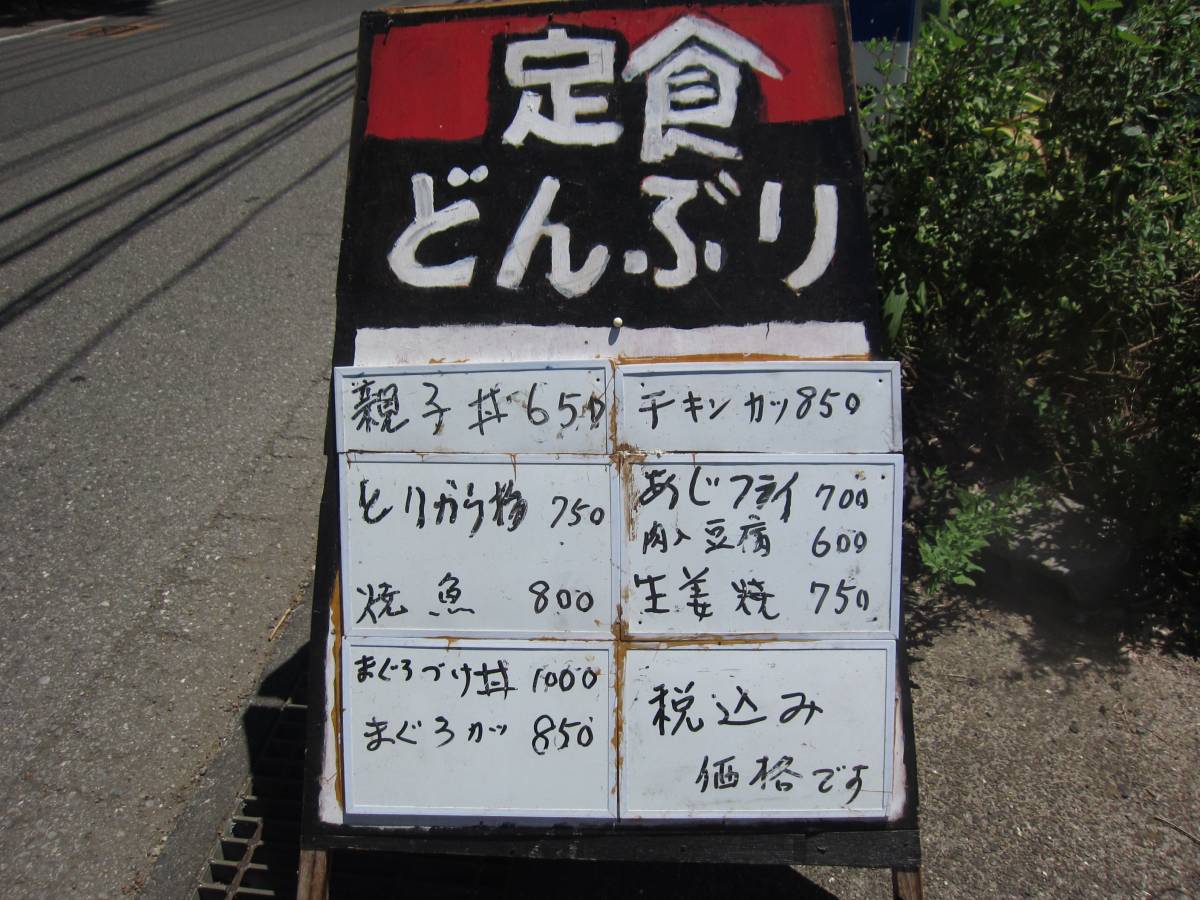 定食
どんぶり
親子丼 650
チキンカツ 850
とりから揚 750
焼魚 800
あじフライ 700
肉入豆腐 600
生姜焼 750
まぐろづけ丼 1000
まぐろカツ 850
税込み
価格です